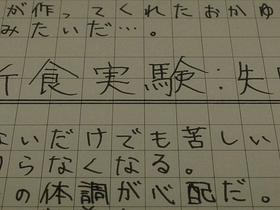 が作ってくれたおかゆ
みたいだ…。
断食実験:失
ないだけでも苦しい
らなくなる。
の体調が心配だ。